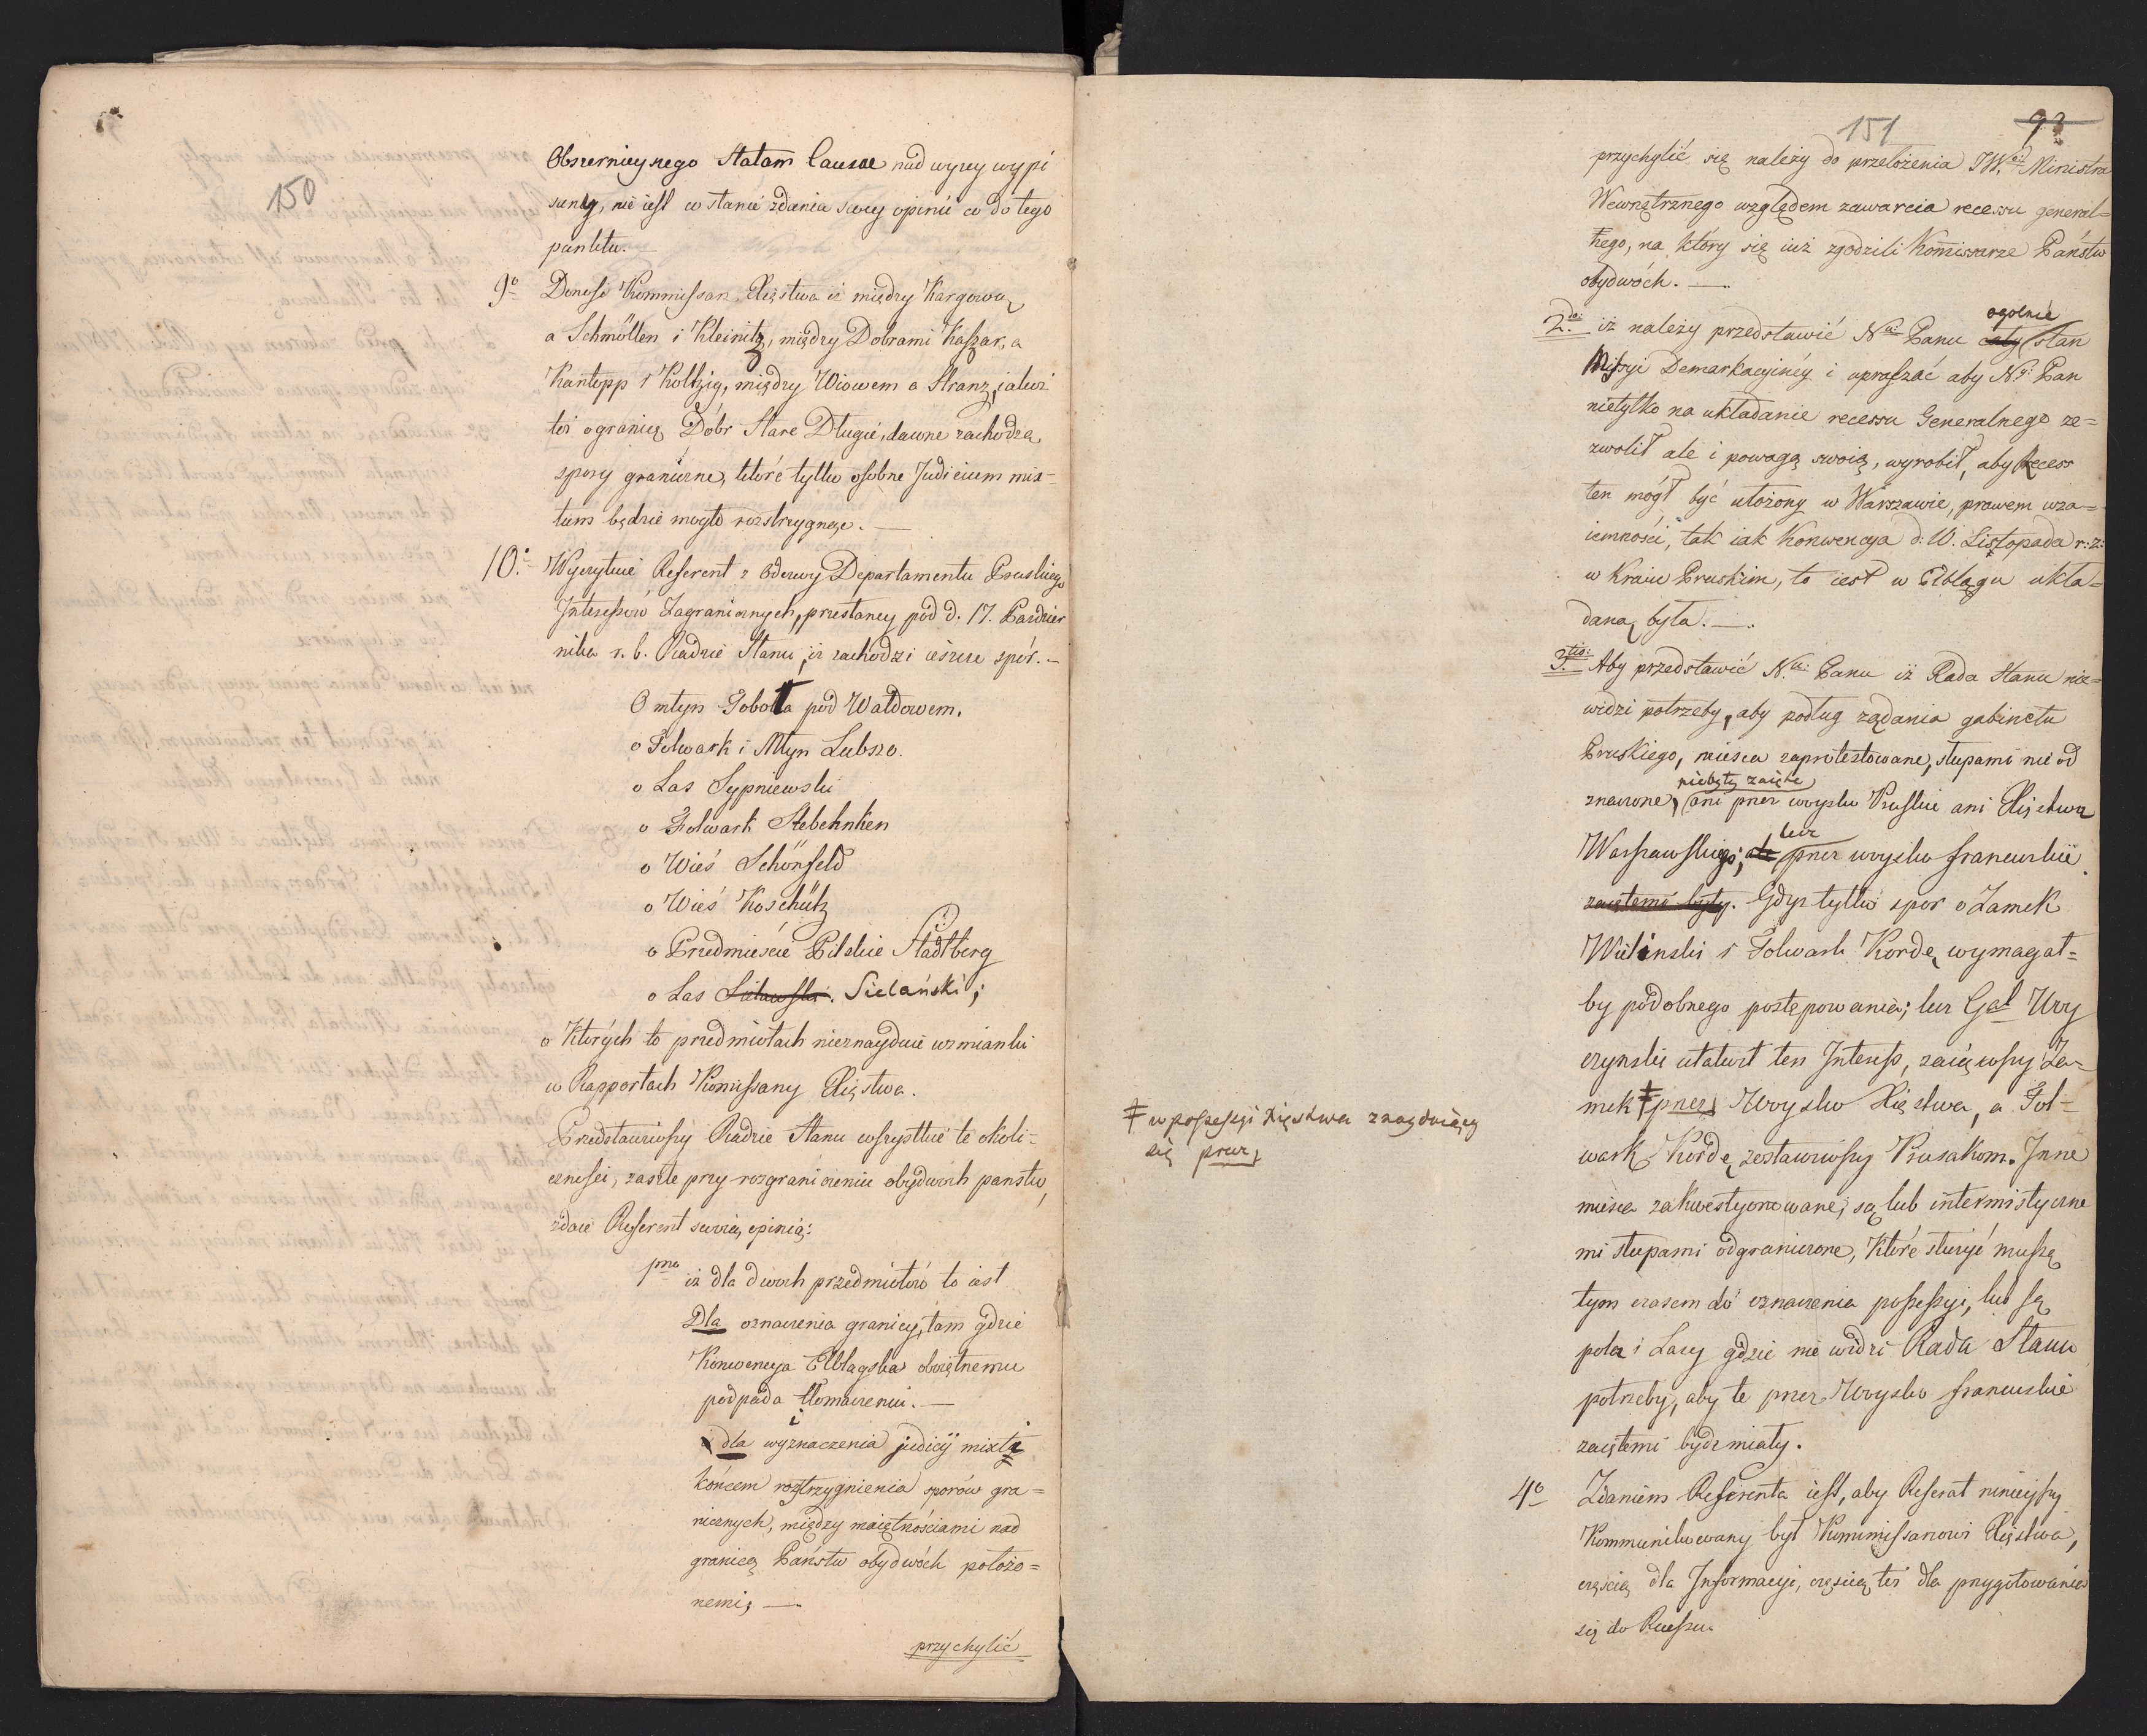 150
Obszernieyszego Statam Causae nad wyzey wypi
saney, nie iest w stanie zdania swey opinii co do tego
punktu.
9o Donosi Kommissarz Xięstwa iż między Kargową
a Schmöllen i Kleinitz, między Dobrami Kaszar, a
Kontopp i Koltzig, między Wiowem a Stranz, iakoż
też o granicę Dóbr Stare Długie, dawne zachodzą
spory graniczne, które tylko osobne Judicium mix=
tum będzie mogło rozstrzygnąć. —
10o Wyczytuie Referent z Odezwy Departamentu Pruskiego
Interessów Zagranicznych, przesłaney pod d. 17. Paździer
nika r. b. Radzie Stanu, iż zachodzi ieszcze spór. —
O młyn Sobotta pod Wałdowem.
o Folwark i Młyn Lubszo
o Las Sypniewski
o Folwark Stebehnken
o Wieś Schönfeld
o Wieś Koschütz
o Przedmieście Pilskie Stadtberg
o Las Sielawski. Sielański;
o Których to przedmiotach nieznayduie wzmianki
w Rapportach Komissarzy Xięstwa.
Przedstawiwszy Radzie Stanu wszystkie te okoli=
czności, zaszłe przy rozgraniczeniu obydwoch państw,
zdaie Referent swoią opinią:
1mo iż dla dwoch przedmiotów to iest
Dla oznaczenia granicy, tam gdzie
Konwencya Elblągska obiętnemu
podpada tłomaczeniu. —
i dla wyznaczenia judicij mixti
końcem rozstrzygnienia sporów gra=
nicznych, między maiętnościami nad
granicą Państw obydwóch położo=
nemi; —
przychylić
151
93
przychylić się należy do przełożenia JW. Ministra
Wewnętrznego względem zawarcia recessu general=
nego, na który się iuż zgodzili Kommissarze Państw
obydwóch. —
ogolnie
2do: iż należy przedstawić Nu: Panu cały stan
Missyi Demarkacyiney i upraszać aby Ny: Pan
nietylko na układanie recessu Generalnego ze=
zwolił ale i powagą swoią, wyrobił, aby Recess
ten mógł być ułożony w Warszawie, prawem wza=
iemności, tak iak Konwencya d: 10. Listopada r: z:
w Kraiu Pruskim, to iest w Elblągu ukła=
daną była. —.
3tio: Aby przedstawić Nu: Panu iż Rada Stanu nie=
widzi potrzeby, aby podług ządania gabinetu
Pruskiego, mieysca zaprotestowane, słupami nie od
niebyły zaięte
znaczone, ani przez woysko Pruskie ani Xięstwa
lecz
Warszawskiego; ale przez woysko francuzkie
zaiętemi były. Gdyż tylko spor o Zamek
Wieliński i Folwark Kordę wymagał=
by podobnego postępowania; lecz Gał Woy
czynski utatwił ten Interess, zaiąwszy Za=
mek ǂ przez Woysko Xięstwa, a Fol=
ǂ w possessyi Xięstwa znayduiący
się przez
wark Kordę zostawiwszy Prusakom. Inne
mieisca zakwestyonowane, są lub intermistyczne
mi słupami odgraniczone, Które służyć muszą
tym czasem do oznaczenia possessyi, lub są
pola i Lasy gdzie nie widzi Rada Stanu
potrzeby, aby te przez Woysko francuskie
zaiętemi bydź miały.
4o Zdaniem Referenta iest, aby Referat ninieyszy
Kommunikowany był Kommissarzowi Xięstwa,
częścią dla Informacyi, częścią też dla przygotowania
się do Recessu.